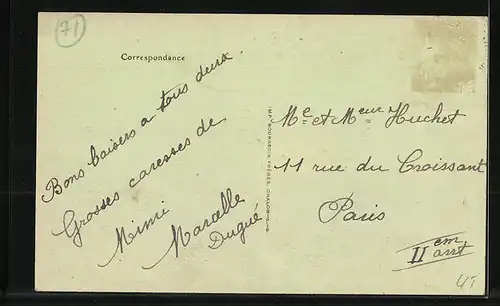 71
Correspondance
Bons baisers a tous deux
Grosses caresses de
Mimi
Marcelle
Dugué
IMP. BOURGEOIS FRÈRES, CHALON-S-S
Me et Meur Huchet
11 rue du Croissant
Paris
II em
arrt